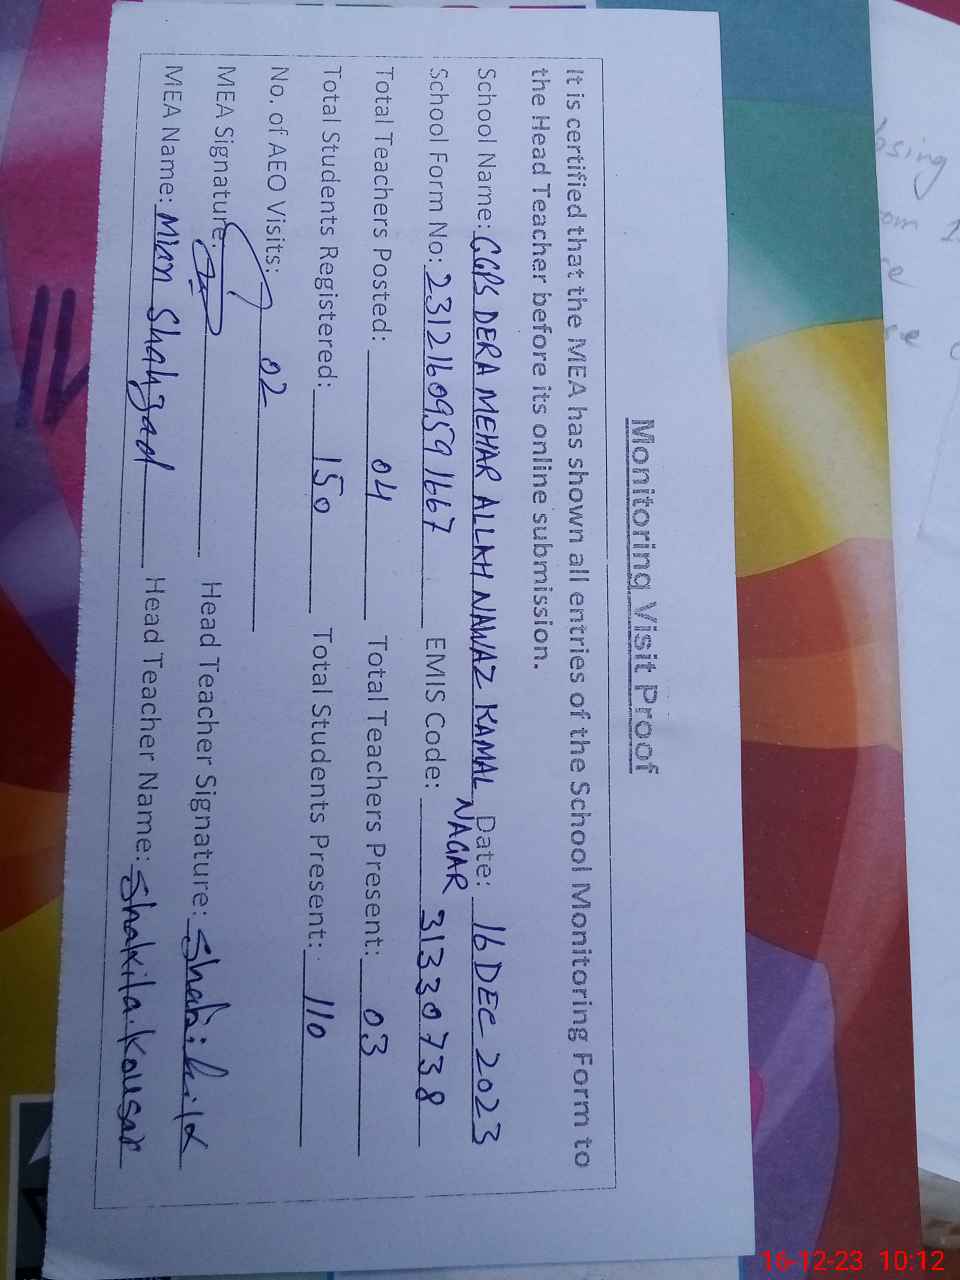 Monitoring Visit Proof
It is certified that the MEA has shown all entries of the School Monitoring Form to
the Head Teacher before its online submission.
School Name: GGPS DERA MEHAR ALLAH NAWAZ KAMAL NAGAR Date: 16 DEC 2023
School Form No: 23121609591667 EMIS Code: 31330738
Total Teachers Posted: 04 Total Teachers Present: 03
Total Students Registered: 150 Total Students Present: 110
No. of AEO Visits: 02
MEA Signature: Head Teacher Signature:
MEA Name: Mian Shahzad Head Teacher Name: Shakila Kousar
16-12-23 10:12